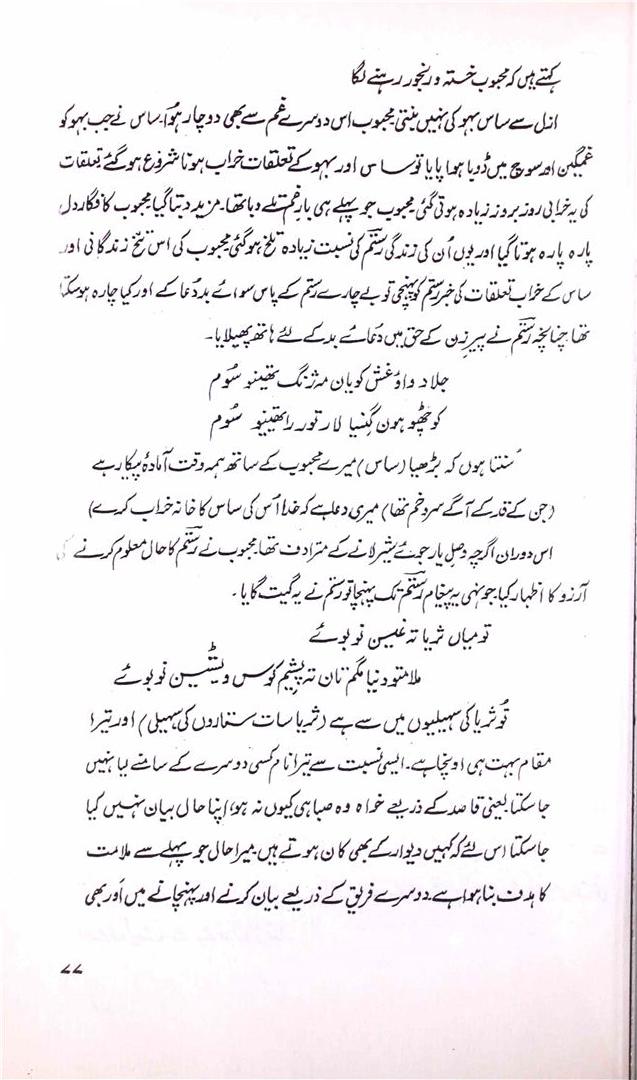 کہتے ہیں کہ محبوب خستہ و رنجور رہنے لگا
ازل سے ساس بہو کی نہیں بنتی محبوب اس دوسرے غم سے بھی دوچار ہوا۔ ساس نے جب بہو کو
غمگین اور سوچ میں ڈوبا ہوا پایا تو ساس اور بہو کے تعلقات خراب ہونا شروع ہو گئے تعلقات
کی یہ خرابی روز بروز زیادہ ہوتی گئی محبوب جو پہلے ہی بارِ غم تلے دبا تھا۔ مزید دبتا گیا محبوب کا فگار دل
پارہ پارہ ہوتا گیا اور یوں اُن کی زندگی رستم کی نسبت زیادہ تلخ ہو گئی محبوب کی اس تلخ زندگانی اور
ساس کے خراب تعلقات کی خبر رستم کو پہنچی تو بے چارے رستم کے پاس سوائے بددُعا کے اور کیا چارہ ہو سکتا
تھا چنانچہ رستم نے پیرزن کے حق میں دُعائے بد کے لئے ہاتھ پھیلایا۔
جلاد داؤ غش کویان مہ ژنگ تھینو سُوم
کوچھو ہون گنیا لار تور راتھینو سُوم
سُنتا ہوں کہ بڑھیا (ساس) میرے محبوب کے ساتھ ہمہ وقت آمادۂ پیکار ہے
(جن کے قد کے آگے سرد خم تھا) میری دعا ہے کہ خدا اُس کی ساس کا خانہ خراب کرے)
اس دوران اگرچہ وصلِ یار جوئے شیر لانے کے مترادف تھا۔ محبوب نے رستم کا حال معلوم کرنے کی
آرزو کا اظہار کیا۔ جونہی یہ پیغام رستم تک پہنچا تو رستم نے یہ گیت گایا۔
تو میاں ثریا تہ غیسن نو بوئے
ملامتو دنیا مگم نان تہ پشیم کوس ویشٹین نو بوئے
تُو ثریا کی سہیلیوں میں سے ہے (ثریا سات ستاروں کی سہیلی) اور تیرا
مقام بہت ہی اونچا ہے۔ ایسی نسبت سے تیرا نام کسی دوسرے کے سامنے لیا نہیں
جا سکتا یعنی قاصد کے ذریعے خواہ وہ صبا ہی کیوں نہ ہو، اپنا حال بیان نہیں کیا
جا سکتا اس لئے کہ کہیں دیوار کے بھی کان ہوتے ہیں۔ میرا حال جو پہلے سے ملامت
کا ہدف بنا ہوا ہے۔ دوسرے فریق کے ذریعے بیان کرنے اور پہنچانے میں اَور بھی
۷۷